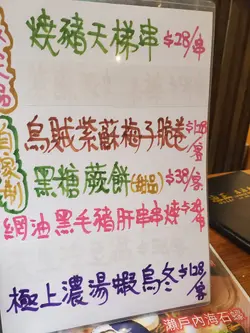 燒豬天梯串 $28/串
自家制
烏賊紫蘇梅子脆卷 $128/客
黑糖蕨餅(甜品) $38/客
網油黑毛豬肝串燒
極上濃湯蝦烏冬 $128/客
瀨戶內海石